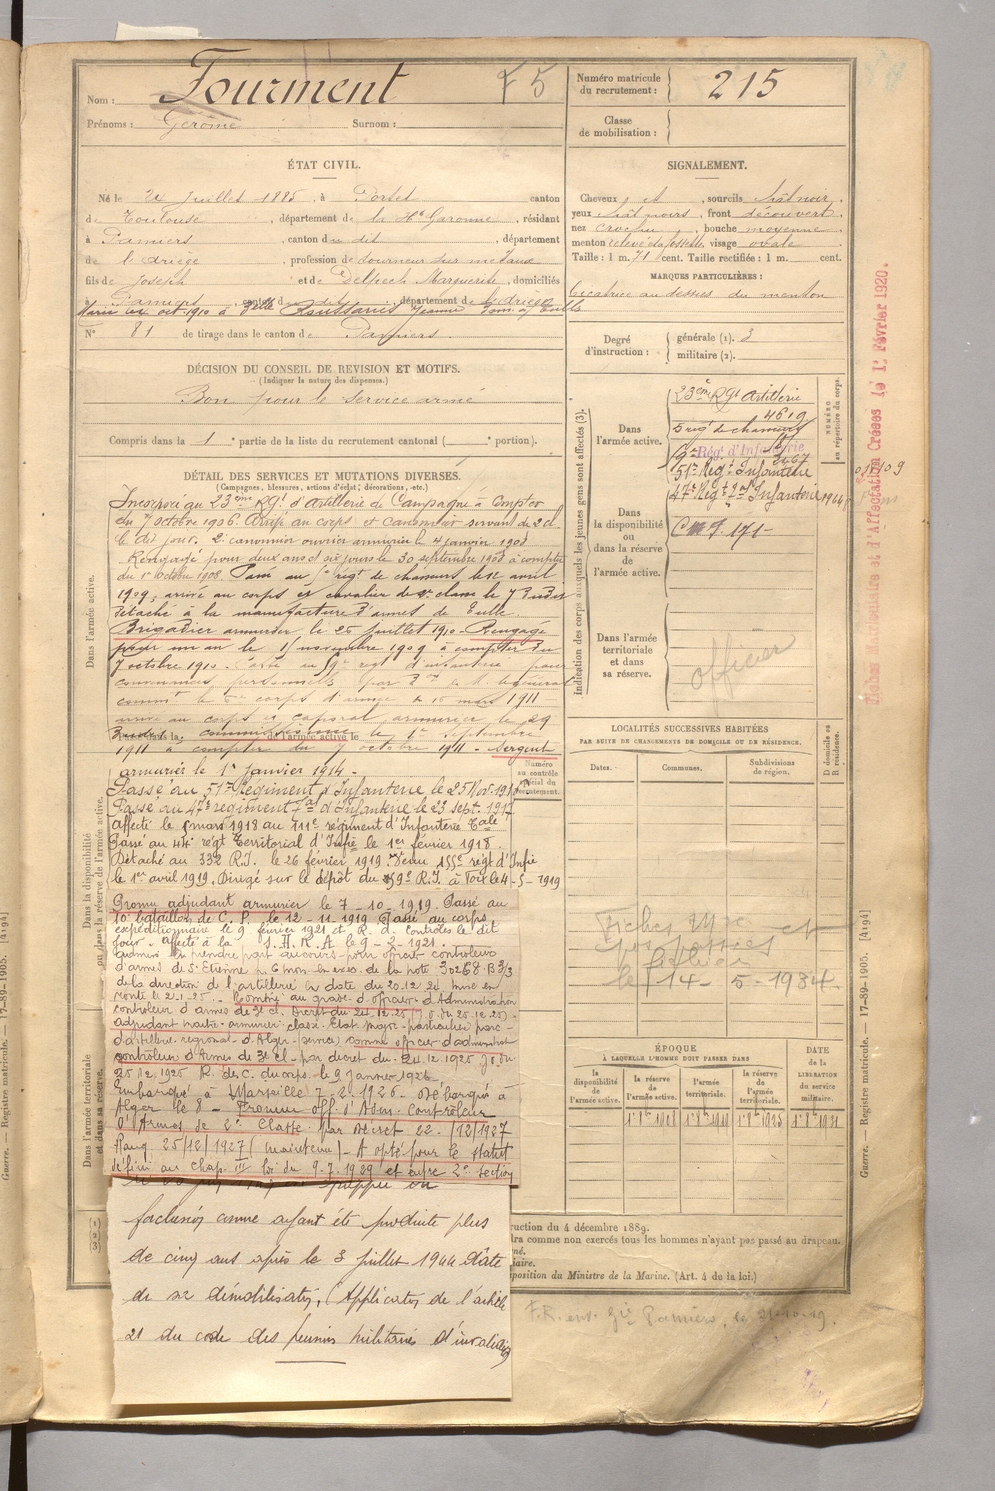 Nom : Fourment F 5
Prénoms : Gérôme Surnom :
Numéro matricule du recrutement : 215
Classe de mobilisation :
ÉTAT CIVIL.
Né le 24 Juillet 1885, à Portet canton
de Toulouse, département de la Hte Garonne, résidant
à Pamiers, canton du dit, département
de l'ariège, profession de tourneur sur métaux
fils de Joseph et de Delpech Marguerite, domiciliés
à Pamiers, canton du dit, département de l'ariège
Marié oct. 1910 à Jeanne
N° 81 de tirage dans le canton de Pamiers.
DÉCISION DU CONSEIL DE REVISION ET MOTIFS.
(Indiquer la nature des dispenses.)
Bon pour le service armé
Compris dans la 1e partie de la liste du recrutement cantonal ( e portion).
DÉTAIL DES SERVICES ET MUTATIONS DIVERSES.
(Campagnes, blessures, actions d'éclat, décorations, etc.)
Dans l'armée active.
Incorporé au 23ème Rgt d'artillerie de Campagne à Compter
du 7 octobre 1906. Arrivé au corps et canonnier servant de 2e cl
le dit jour. 2e canonnier ouvrier armurier le 4 janvier 1908
Rengagé pour deux ans et six jours le 30 septembre 1908 à compter
du 1er octobre 1908. Passé au régt de chasseurs le 12 avril
1909, arrivé au corps et cavalier de 2e classe le 7
Détaché à la manufacture d'armes de Tulle
Brigadier armurier le 25 Juillet 1910. Rengagé
pour un an le 1 novembre 1909 à compter du
7 octobre 1910. Passé au 9e régt d'infanterie pour
convenances personnelles par
corps d'armée 15 mars 1911
arrivé au corps et caporal armurier le 29
commissionné le 1er Septembre
1911 à compter du 7 octobre 1911 - Sergent
armurier le 1er Janvier 1914.
Passé au 51e Régiment d'Infanterie le 25 Nov. 1916
Passé au 47e régiment d'Infanterie le 23 Sept. 1917
affecté le 1 mars 1918 au 111e régiment d'Infanterie Tale
Passé au 44e régt Territorial d'Infie le 1er février 1918.
Détaché au 332 R.I. le 26 février 1919. Venu 155e régt d'Infie
le 1er avril 1919. Dirigé sur le dépôt du 59e R.I. à Foix le 4-5-1919
Dans la disponibilité ou dans la réserve de l'armée active.
Numéro au contrôle spécial du recrutement.
Promu adjudant armurier le 7-10-1919. Passé au
10e bataillon de C. P. le 12-11-1919 Passé au corps
expéditionnaire le 9 février 1921 et R. d. contrôles le dit
jour. affecté à la S. H. R. A le 9-2-1921.
admis à prendre part au cours pour officier contrôleur
d'armes de St Etienne p. 6 mois en exéc. de la note 30268 B 3/3
de la direction de l'artillerie en date du 20.12.24 mise en
route le 2-1-25. Nommé au grade d'officier d'Administration
contrôleur d'armes de 3e cl. Décret du 24.12.25 (J.O. du 25.12.25)
adjudant maître-armurier classé Etat Major-particulier parc
d'artillerie régional d'Alger-service comme officier d'administ
contrôleur d'armes de 3e cl. par décret du 24.12.1925 J.O. du
25.12.1925 R. des C. du corps le 9 janvier 1926
Embarqué à Marseille 7-2-1926. Débarqué à
Alger le 8 - Promu off. d'Adm. Contrôleur
d'Armes de 2e Classe par décret 22/12/1927
Rang 25/12/1927 (maintenu) - A opté pour le statut
défini au Chap. III loi du 9.7.1929 et 2e section
Dans l'armée territoriale et dans sa réserve.
forclusion comme ayant été produite plus
de cinq ans après le 3 juillet 1944 date
de sa démobilisation, (Application de l'article
21 du code des pensions militaires d'invalidité)
SIGNALEMENT.
Cheveux et, sourcils chât noir
yeux chât noirs, front découvert
nez crochu, bouche moyenne
menton relevé à fossette, visage ovale
Taille : 1 m. 71 cent. Taille rectifiée : 1 m. cent.
MARQUES PARTICULIÈRES :
Cicatrice au dessus du menton
Degré d'instruction : générale (1). 3
militaire (2).
Indication des corps auxquels les jeunes gens sont affectés (3).
NUMÉRO au répertoire du corps.
Dans l'armée active.
23ème Rgt Artillerie
4619
9e Régt d'Infanterie
51e Régt Infanterie
47e Régt Infanterie
Dans la disponibilité ou dans la réserve de l'armée active.
Dans l'armée territoriale et dans sa réserve.
officier
LOCALITÉS SUCCESSIVES HABITÉES
PAR SUITE DE CHANGEMENTS DE DOMICILE OU DE RÉSIDENCE.
Dates. Communes. Subdivisions de région. D domicile ou R résidence.
Fiches et
le 14 - 5 - 1934.
ÉPOQUE
À LAQUELLE L'HOMME DOIT PASSER DANS
la disponibilité de l'armée active. la réserve de l'armée active. l'armée territoriale. la réserve de l'armée territoriale.
DATE de la LIBÉRATION du service militaire.
1er 8bre 1908 1er 8bre 1918 1er 8bre 1925 1er 8bre 1931
ruction du 4 décembre 1889.
dra comme non exercés tous les hommes n'ayant pas passé au drapeau.
position du Ministre de la Marine. (Art. 4 de la loi.)
Fiches Matriculaires et d'Affectation Créées le 1er Février 1920.
Guerre. — Registre matricule. — 17-89-1905. [4194]
Guerre. — Registre matricule. — 17-89-1905. [4194]